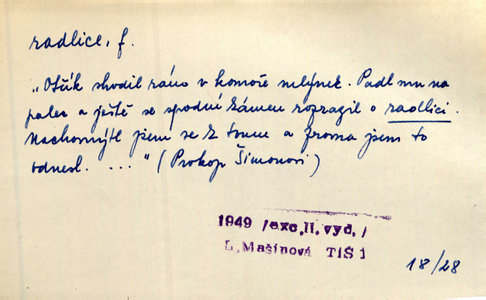 radlice, f.
„Otčík shodil ráno v komoře mlýnek. Padl mu na
palec a ještě se spodní kámen rozrazil o radlici.
Nachomýtl jsem se k tomu a zrovna jsem to
odnesl. ... " (Prokop Šimonovi)
1949 /exc,II.vyd,/
L.Mašínová TIŠ 1
18/28